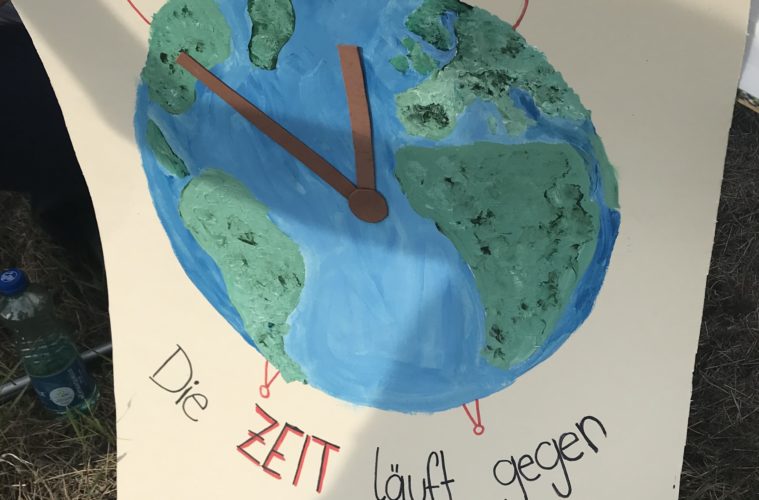 Die ZEIT läuft gegen